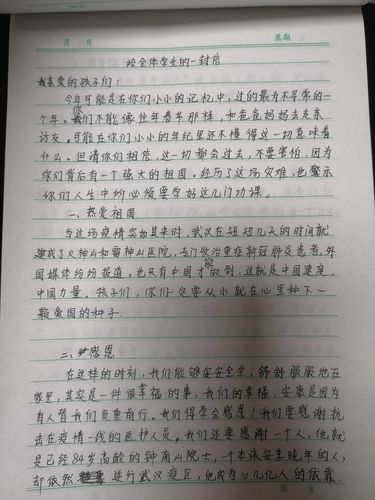 月 日 星期
给全体学生的一封信
我亲爱的孩子们:
今年可能是在你们小小的记忆中,过的最为不寻常的一
个年。你们不能像往年春节那样,和爸爸妈妈去走亲
访友。可能在你们小小的年纪里还不懂得这一切意味着
什么。但请你们相信,这一切都会过去,不要害怕,因为
你们背后有一个强大的祖国。经历了这场灾难,也警示
你们人生中所必须要学好这几门功课。
一、热爱祖国
当这场疫情突如其来时,武汉在短短几天的时间就
建成了火神山和雷神山医院,专门收治重症新冠肺炎患者,外
国媒体纷纷报道,也只有中国才能做到,这就是中国速度,
中国力量。孩子们,你们一定要从小就在心里种下一
颗爱国的种子
二、感恩
在这样的时刻,我们能够安安全全,舒舒服服地在
家里,其实是一件很幸福的事,我们的幸福,安康是因为
有人替我们负重前行。我们得学会感恩!我们要感谢抗
击在疫情一线的医护人员。我们还要感谢一个人,他就
是已经84岁高龄的钟南山院士,一个本该安享晚年的人,
却依然逆行武汉疫区,他成为10几亿人的依靠